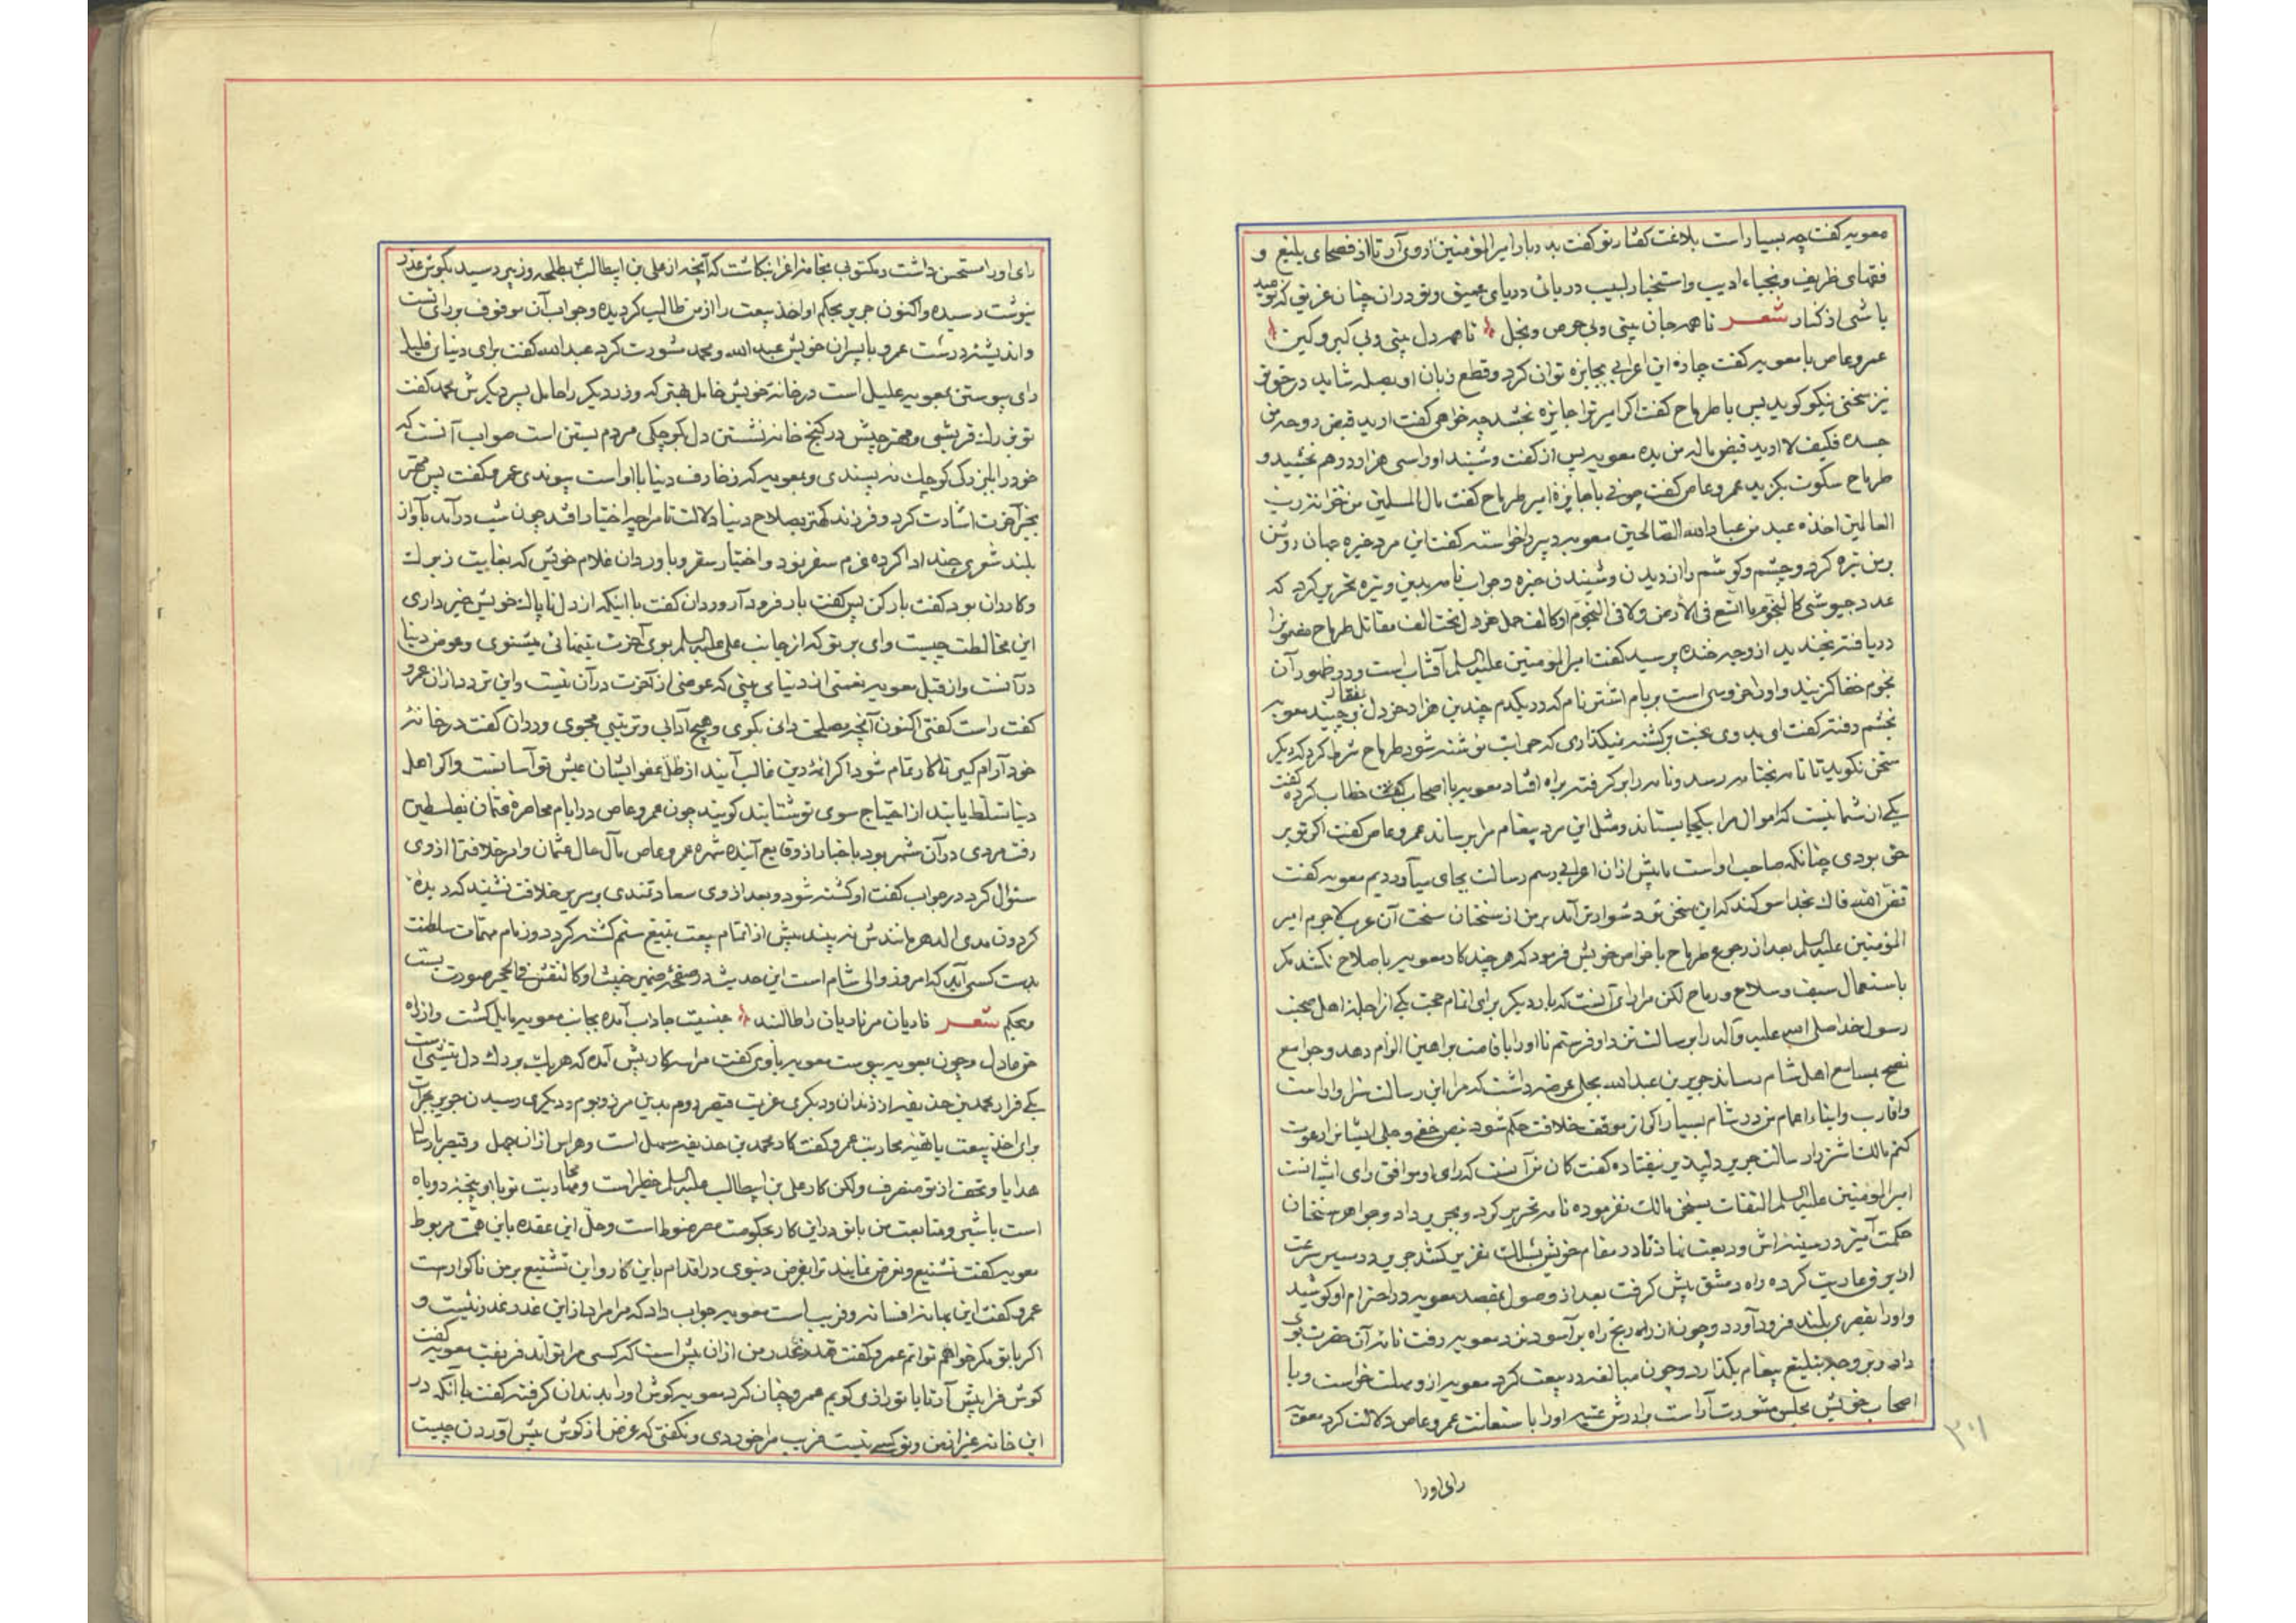 معویه گفت چه بسیار است بلاغت گفتار تو گفت بدربار امیرالمؤمنین روی آر تا از فصحای بلیغ و
فقهای ظریف و نجباء ادیب و استخبار لبیب دریائی دریای عمیق و تو در ان چنان غریق که بعید
باشی از کنار شعر تا همه جان بینی و بی حرص و بخل تا همه دل بینی و بی کبر و کین
عمرو عاص با معویه گفت چارهٔ این اعرابی بجایزه توان کرد و قطع زبان او بصله شاید در حق تو
نیز سخنی نیکو گوید پس با طرماح گفت اگر امیر ترا جایزه بخشد چه خواهی گفت ارید قبض روحه من
جسده فکیف لا ارید قبض ماله من یده معویه پس از گفت و شنید او را سی هزار درهم بخشید و
طرماح سکوت بگزید عمرو عاص گفت چونی با جایزهٔ امیر طرماح گفت مال المسلمین من خزانة رب
العالمین اخذه عبد من عباد الله الصالحین معویه دبیر را خواسته گفت این مرد خیره جهان روشن
بر من تیره کرد و چشم و گوشم را از دیدن و شنیدن خیره و جواب نامه بدین وتیره تحریر کرد که
عدد جیوشی کالنجوم ما اتسع فی الارض ولا فی النجوم اوکالف حمل خردل تحت الف مقاتل طرماح مضمونرا
دریافته بخندید از وجه خنده پرسید گفت امیرالمؤمنین علیه السلم آفتاب است و در ظهور آن
نجوم خفا گزیند و او را خروسی است بر بام اشتر نام که در یکدم چندین هزار خردل بمنقار برچیند معویه
بخشم رفته گفت ای بدوی بخت برگشته نمیگذاری که جوابت نوشته شود طرماح شرط کرد که دیگر
سخن نگوید تا نامه بختامه رسد و نامه را برگرفته براه افتاد معویه با اصحاب خطاب کرده گفت
یکی از شما نیست که اموال مرا یکجا بستاند و مثل این مرد پیغام مرا برساند عمرو عاص گفت اگر تو بر
حق بودی چنانکه صاحب او است ما بیش از ان اعرابی رسم رسالت بجای میآوردیم معویه گفت
فض الله فاک بخدا سوگند که این سخن تو دشوارتر آمد بر من از سخنان سخت آن عرب لاجرم امیر
المؤمنین علیه السلم بعد از رجوع طرماح با خواص خویش فرمود که هر چند کار معویه باصلاح نکشد مگر
باستعمال سیف و سلاح و رماح لکن مرا رای آنست که بار دیگر برای اتمام حجت یکی از اجلهٔ اهل صحبت
رسول خدا صلی الله علیه وآله را برسالت نزد او فرستم تا او را باقامت براهین الزام دهد و جوامع
نصح بمسامع اهل شام رساند جریر بن عبد الله بجلی عرضه داشت که مرا این رسالت سزاوار است
و اقارب و ابناء اعمام من در شام بسیار اگر از موقف خلافت حکم شود بنص خفی و جلی ایشانرا دعوت
کنم مالک اشتر را رسالت جریر دلپذیر نیفتاده گفت گمان من آنست که رای او موافق رای ایشانست
امیرالمؤمنین علیه السلم التفات بسخن مالک نفرموده نامه تحریر کرد و بجریر داد و جواهر سخنان
حکمت آمیز در سینه اش ودیعت نهاد تا در مقام خویش بسلک تقریر کشد جریر در سیر سرعت
از برق عاریت کرده راه دمشق پیش گرفت بعد از وصول بمقصد معویه در احترام او کوشید
و او را بقصری بلند فرود آورد و چون از راه رنج راه برآسود نزد معویه رفت نامه آن حضرت بوی
داد و بر وجه تبلیغ پیغام بگذارد و چون مبالغه در بیعت کرد معویه از او مهلت خواست و با
اصحاب خویش مجلس مشورت آراست برادرش عتبه او را باستعانت عمرو عاص دلالت کرد معویه
رای او را
رای او را مستحسن داشت و مکتوبی بخامهٔ اغرا بنگاشت که آنچه از علی بن ابیطالب بطلحه و زبیر رسید بگوش عذر
نیوشت رسیده و اکنون جریر بحکم او اخذ بیعت را از من طالب گردیده و جواب آن موقوف برای تست
و اندیشهٔ درست عمرو با پسران خویش عبد الله و محمد مشورت کرد عبد الله گفت برای دنیای قلیل
رای پیوستن بمعویه علیل است در خانهٔ خویش خامل به که وزر دیگر را حامل پسر دیگرش محمد گفت
تو فرزانه قریشی و مهتر جیش در کنج خانه نشستن دل بکوچکی مردم بستن است صواب آنست که
خود را با بزرگی کوچک نه پسندی و بمعویه که زخارف دنیا با او است پیوندی عمرو گفت پسر مهتر
بخیر آخرت اشارت کرد و فرزند کهتر بصلاح دنیا دلالت تا مرا چه اختیار افتد چون شب درآمد بآواز
بلند شعری چند ادا کرده عزم سفر نمود و اختیار سفر و با وردان غلام خویش که بغایت زیرک
و کاردان بود گفت بار کن پس گفت بار فرود آر وردان گفت با اینکه از دل ناپاک خویش خبر داری
این مخالطت چیست وای بر تو که از جانب علی علیه السلم بوی آخرت میشنوی و عوض دنیا
در آنست و از قبل معویه نعمتی از دنیا می بینی که عوضی از آخرت در آن نیست و این تردد از آن عمرو
گفت راست گفتی اکنون آنچه مصلحت دانی بگوی و هیچ آدابی و ترتیبی مجوی وردان گفت در خانهٔ
خود آرام گیر تا کار تمام شود اگر ائمهٔ دین غالب آیند از ظل عفو ایشان عیش تو آسانست و اگر اهل
دنیا تسلط یابند از احتیاج سوی تو شتابند گویند چون عمرو عاص در ایام محاصرهٔ عثمان بفلسطین
رفت مردی در آن شهر بود باخبار از وقایع آینده شهره عمرو عاص مآل حال عثمان و امر خلافت را از وی
سئوال کرد در جواب گفت او کشته شود و بعد از وی سعادتمندی بر سریر خلافت نشیند که دیدهٔ
گردون مدی الدهر مانندش نه بیند پیش از اتمام بیعت بتیغ ستم کشته گردد و زمام مهمات سلطنت
بدست کسی آید که امروز والی شام است این حدیث در صفحهٔ ضمیر خبیث او کالنقش فی الحجر صورت بست
و بحکم شعر ناریان مر ناریان را طالبند جنسیت جاذب آمده بجانب معویه مایل گشت و از راه
حق عادل و چون بمعویه پیوست معویه با وی گفت مرا سه کار پیش آمده که هر یک بر دل نیشی است
یکی فرار محمد بن حذیفه از زندان و دیگری عزیمت قیصر روم بدین مرز و بوم و دیگری رسیدن جریر
برای اخذ بیعت یا تهیهٔ محاربت عمرو گفت کار محمد بن حذیفه سهل است و هراس از ان جهل و قیصر بارسال
هدایا و تحف از تو منصرف ولکن کار علی بن ابیطالب علیه السلم خطیر است و محاربت تو با او پنجه روباه
است با شیر و متابعت من با تو در این کار بحکومت مصر منوط است و حل این عقده باین همت مربوط
معویه گفت تشنیع و تعرض نمایند ترا بغرض دنیوی در اقدام باین کار و این تشنیع بر من ناگوار است
عمرو گفت این بهانه افسانه و فریب است معویه جواب داد که مرا مراد از این عذر غدر نیست و
اگر با تو مکر خواهم توانم عمرو گفت قدر من از ان بیش است که کسی مرا تواند فریفت معویه گفت
گوش فرا پیش آر تا با تو رازی گویم عمرو چنان کرد معویه گوش او را بدندان گرفته گفت با آنکه در
این خانه غیر از من و تو کسی نیست فریب مرا خوردی و نگفتی که غرض از گوش پیش آوردن چیست